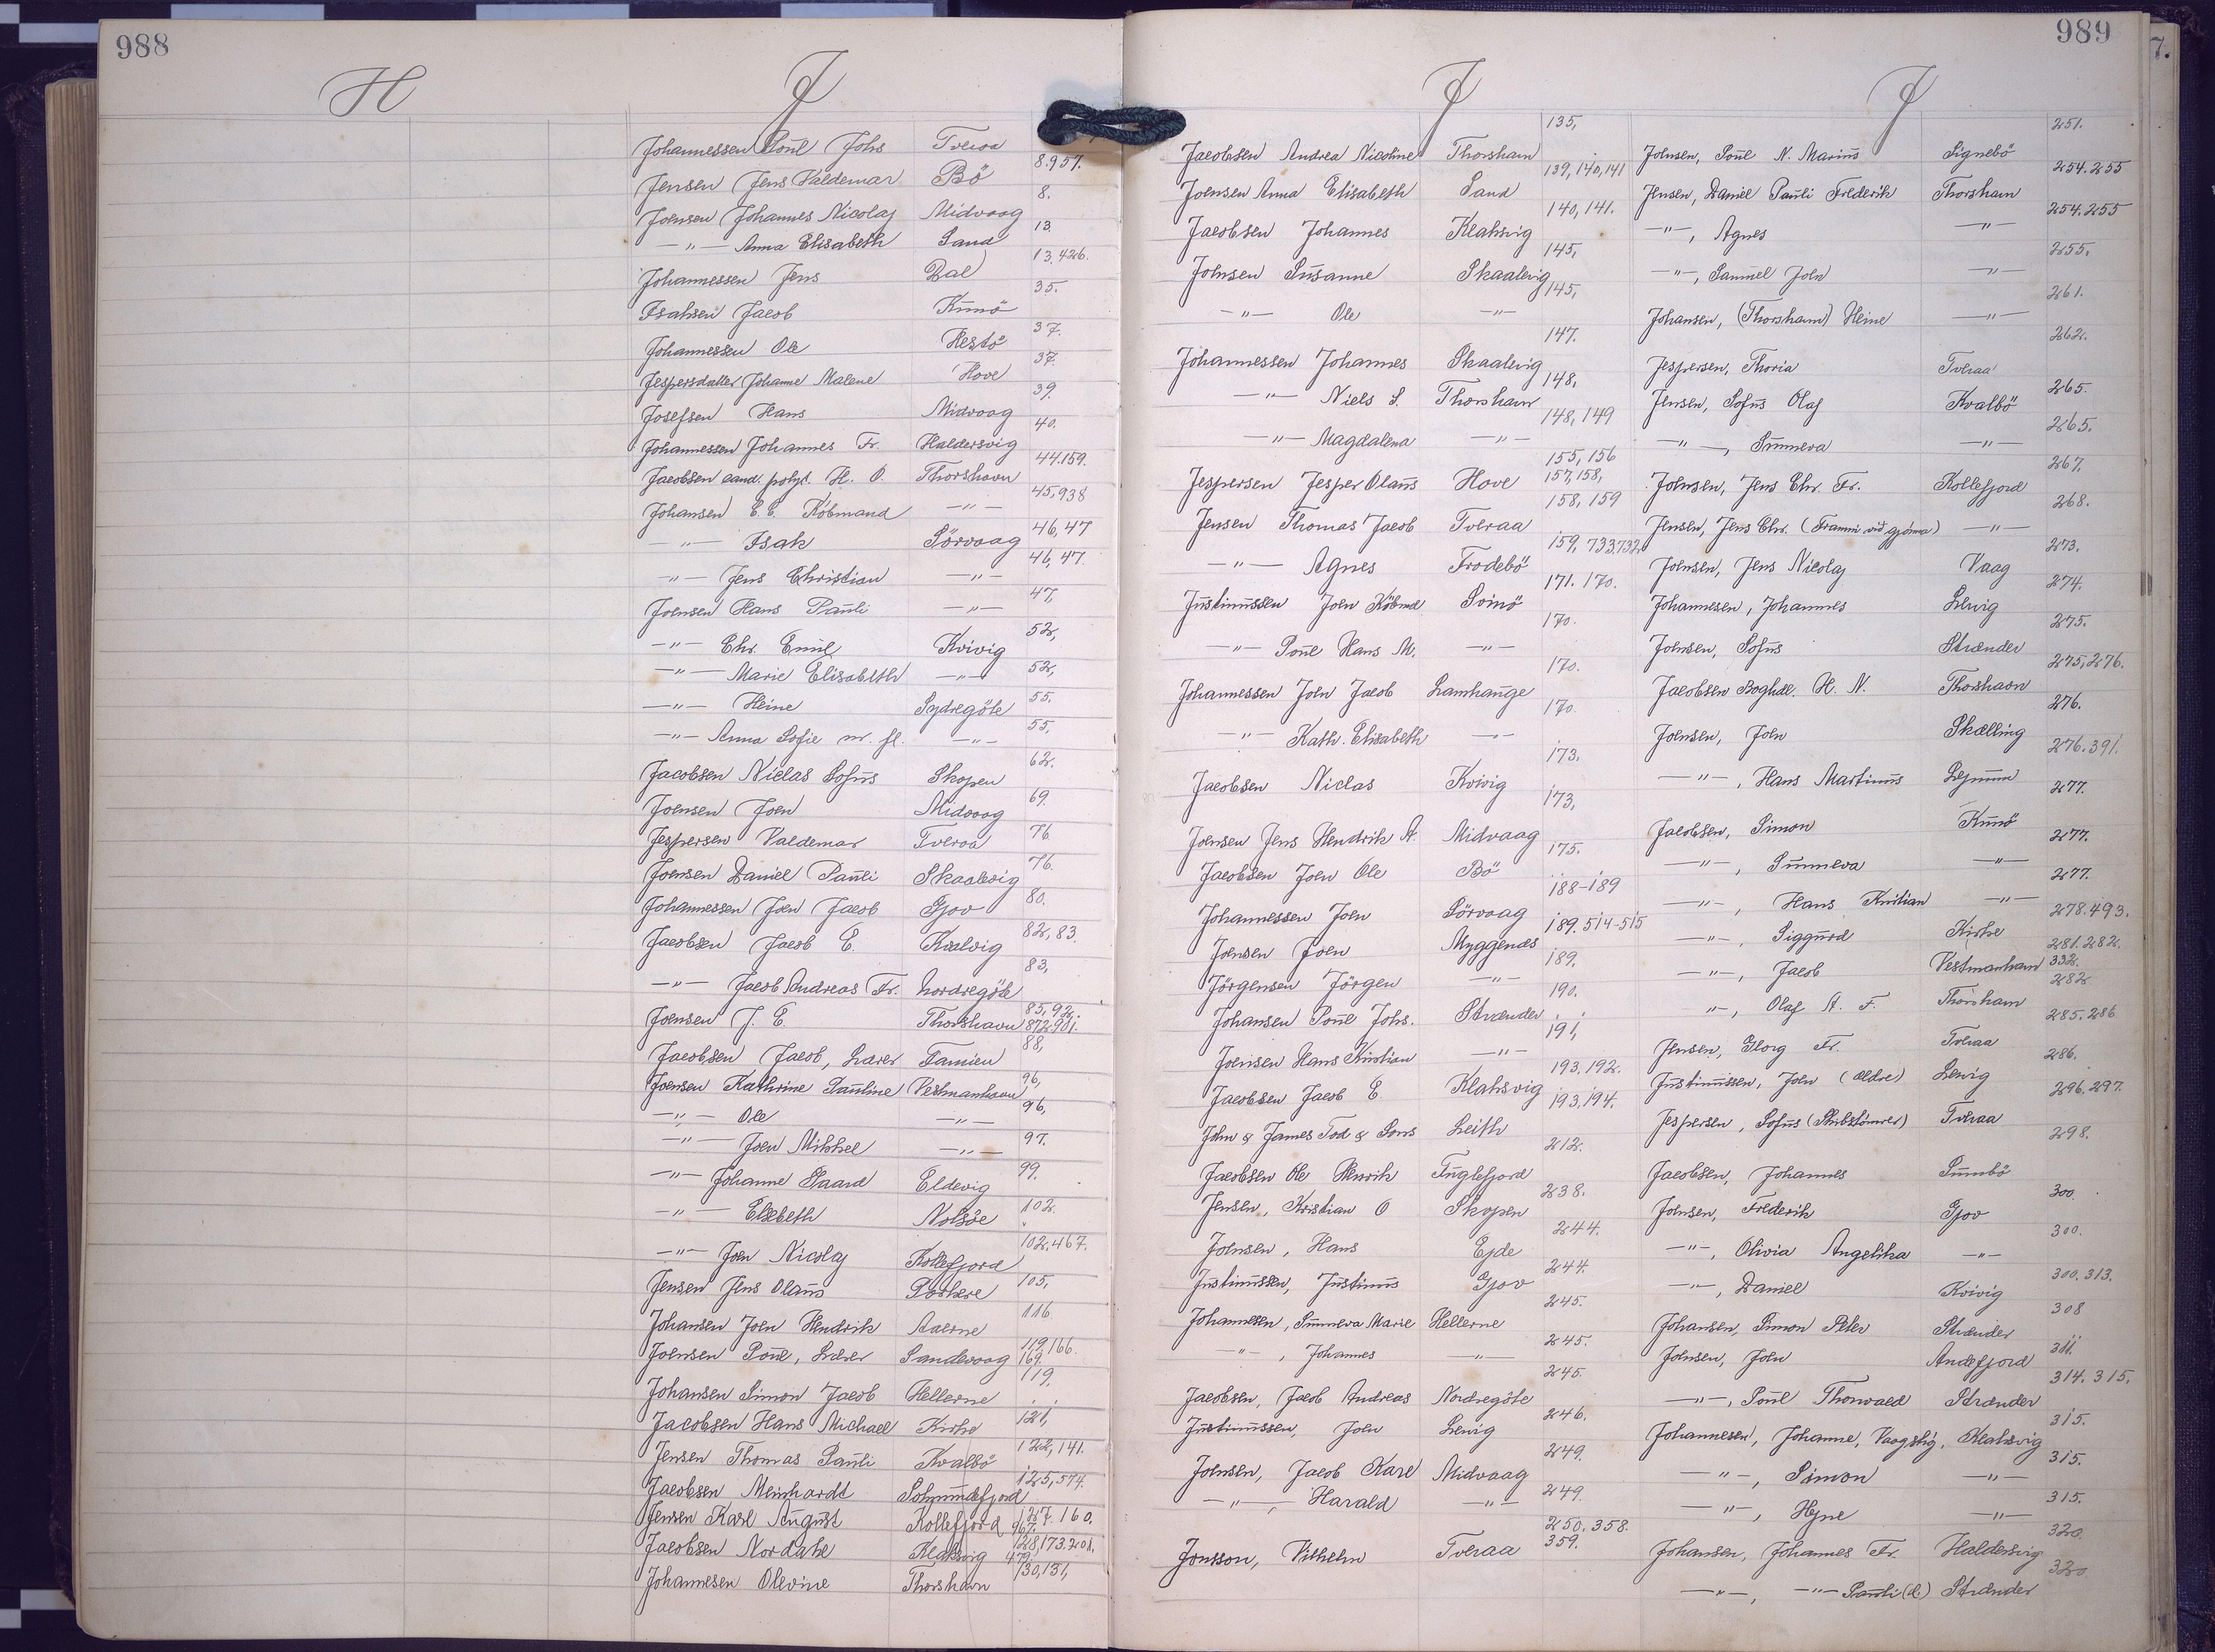 988
H
J
Johannessen Poul Johs Tveraa
Jensen Jens Valdemar Bö 8.957.
Joensen Johannes Nicolaj Midvaag 8.
—"— Anna Elisabeth Sand 13.
Johannessen Jens Dal 13.426.
Isaksen Jacob Kunö 35.
Johannessen Ole Hestö 37.
Jespersdatter Johanne Malene Hove 37.
Josefsen Hans Midvaag 39.
Johannessen Johannes Fr. Haldersvig 40.
Jacobsen cand. polyt. H. O. Thorshavn 44.159.
Johansen E. E. Köbmand —"— 45,938
—"— Isak Sörvaag 46,47
—"— Jens Christian —"— 46,47.
Joensen Hans Pauli —"— 47,
—"— Chr. Emil Kvivig 52,
—"— Marie Elisabeth —"— 52,
—"— Heine Sydregöte 55.
—"— Anna Sofie m. fl. —"— 55,
Jacobsen Niclas Sofus Skopen 62.
Joensen Joen Midvaag 69.
Jespersen Valdemar Tveraa 76
Joensen Daniel Pauli Skaalevig 76.
Johannessen Joen Jacob Gjov 80.
Jacobsen Jacob E. Kvalvig 82,83.
—"— Jacob Andreas Fr. Nordregöte 83,
Joensen J. E. Thorshavn 85,92, 872,901.
Jacobsen Jacob, Lærer Famien 88,
Joensen Kathrine Pauline Vestmanhavn 96,
—"— Ole —"— 96,
—"— Joen Mikkel —"— 97.
—"— Johanne Eldevig 99.
—"— Elsebeth Nolsöe 102.
—"— Joen Nicolaj Kollefjord 102.467.
Jensen Jens Olaus Porkere 105,
Johansen Joen Hendrik Aaerne 116
Joensen Poul, Lærer Sandevaag 119,166. 169.
Johansen Simon Jacob Hellerne 119,
Jacobsen Hans Michael Kirke 121,
Jensen Thomas Pauli Kvalbö 122,141.
Jacobsen Meinhardt 125,574.
Jensen Karl August Kollefjord 127. 160. 967.
Jacobsen Nordahl Klaksvig 128,173.201. 479.
Johannesen Olevine Thorshavn 130,131,
989
J
J
Jacobsen Andrea Nicoline Thorshavn 135,
Joensen Anna Elisabeth Sand 139,140,141
Jacobsen Johannes Klaksvig 140,141.
Joensen Susanne Skaalevig 145,
—"— Ole —"— 145,
Johannessen Johannes Skaalevig 147.
—"— Niels S. Thorshavn 148,
—"— Magdalena —"— 148,149
Jespersen Jesper Olaus Hove 155,156 157,158,
Jensen Thomas Jacob Tveraa 158,159
—"— Agnes Frodebö 159, 733.732.
Justinussen Joen Köbmd Svinö 171. 170.
—"— Poul Hans M. —"— 170.
Johannessen Joen Jacob Lamhauge 170.
—"— Kath. Elisabeth —"— 170.
Jacobsen Niclas Kvivig 173.
Joensen Jens Hendrik A. Midvaag 173,
Jacobsen Joen Ole Bö 175.
Johannessen Joen Sörvaag 188-189
Joensen Joen Myggenæs 189.514-515
Jörgensen Jörgen —"— 189.
Johansen Poul Johs. Strænder 190.
Joensen Hans Kristian —"— 191,
Jacobsen Jacob E Klaksvig 193.192.
John & James Tod & Sons Leith 193.194.
Jacobsen Ole Henrik Fuglefjord 212.
Jensen, Kristian O Skopen 238.
Joensen, Hans Ejde 244.
Justinussen, Justinus Gjov 244.
Johannesen, Sunneva Marie Hellerne 245.
—"—, Johannes —"— 245.
Jacobsen, Jacob Andreas Nordregöte 245.
Justinussen, Joen Lervig 246.
Joensen, Jacob Karl Midvaag 249.
—"—, Harald —"— 249.
Jonsson, Vilhelm Tveraa 250.358. 359.
Joensen, Poul N. Marius Signebö 251.
Jensen, Daniel Pauli Frederik Thorshavn 254.255
—"—, Agnes —"— 254.255
—"—, Samuel Joen —"— 255.
Johansen, (Thorshavn) Heine —"— 261.
Jespersen, Thoria Tveraa 262.
Jensen, Sofus Olaf Kvalbö 265.
—"—, Sunneva —"— 265.
Joensen, Jens Chr. Fr. Kollefjord 267.
Jensen, Jens Chr. (Frammi við gjónna) —"— 268.
Joensen, Jens Nicolaj Vaag 273.
Johannesen, Johannes Lervig 274.
Joensen, Sofus Strænder 275.
Jacobsen Boghdl. H. N. Thorshavn 275,276.
Joensen, Joen Skælling 276.
—"—, Hans Martinus Lejnum 276.391.
Jacobsen, Simon Kunö 277.
—"—, Sunneva —"— 277.
—"—, Hans Kristian —"— 277.
—"—, Siggurd Kirke 278.493.
—"—, Jacob Vestmanhavn 281.282. 332.
—"—, Olaf A. F. Thorshavn 282
Jensen, Georg Fr. Tveraa 285.286
Justinussen, Joen (ældre) Lervig 286.
Jespersen, Sofus (Skibstömrer) Tveraa 296.297.
Jacobsen, Johannes Sumbö 298.
Joensen, Frederik Gjov 300.
—"—, Olivia Angelika —"— 300.
—"—, Daniel Kvivig 300.313.
Johansen, Simon Peter Strænder 308
Joensen, Joen Andefjord 311.
—"—, Poul Thorvald Strænder 314.315.
Johannesen, Johanne, Vaagstig, Klaksvig 315.
—"—, Simon —"— 315.
—"—, Hejne —"— 315.
Johansen, Johannes Fr. Haldersvig 320.
—"—, —"— Pauli (d.) Strænder 320.
7.